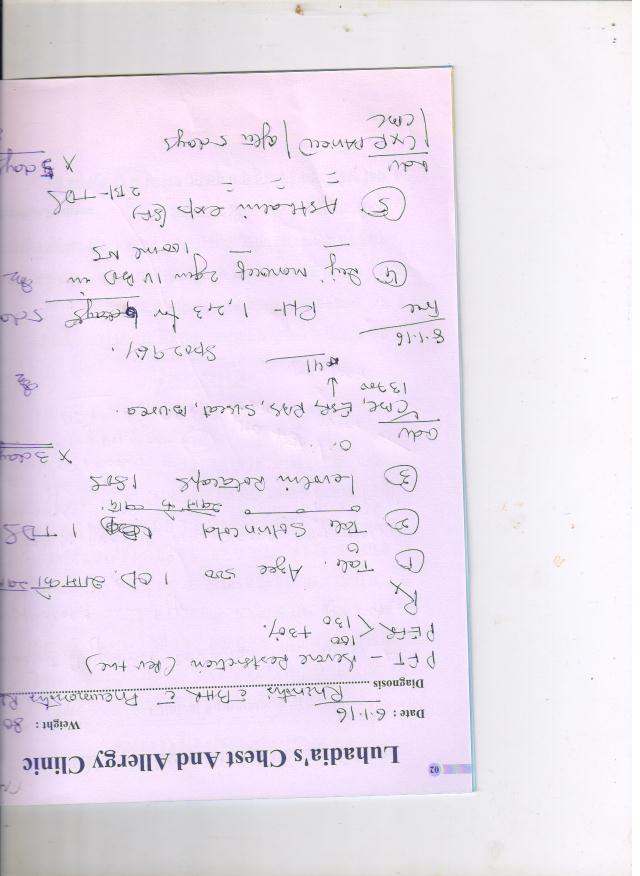 02
Luhadia's Chest And Allergy Clinic
Date : 6.1.16 Weight : 80
Diagnosis Rhinitis c BHR c Pneumonitis Rt
PFT - Severe Restriction (Rev +ve)
PEFR < 100 +30%.
130
Rx
① Tab. Azee 500 1 OD.
② Tab Solvin cold 1 TDS
③ Levolin Rotacaps 1 BDS
x 3 days
adv
CBC, ESR, RBS, S.creat, B.urea.
13700 ↓ 41
SpO2 96%.
8.1.16
Free Rpt 1, 2, 3 for 5 days
④ Inj monocef 2gm IV OD in
100ml NS
⑤ Asthalin exp (SF)
2 tsf - TDS
x 5 days
Adv
CXR (PA view) | after 5 days
CBC